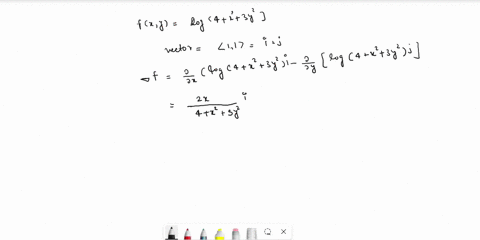 f(x,y) = log(4+x²+3y²]
vector = <1,1> = i+j
∇f = ∂/∂x (log(4+x²+3y²)i - ∂/∂y [log(4+x²+3y²)j]
= 2x/(4+x²+3y²) i